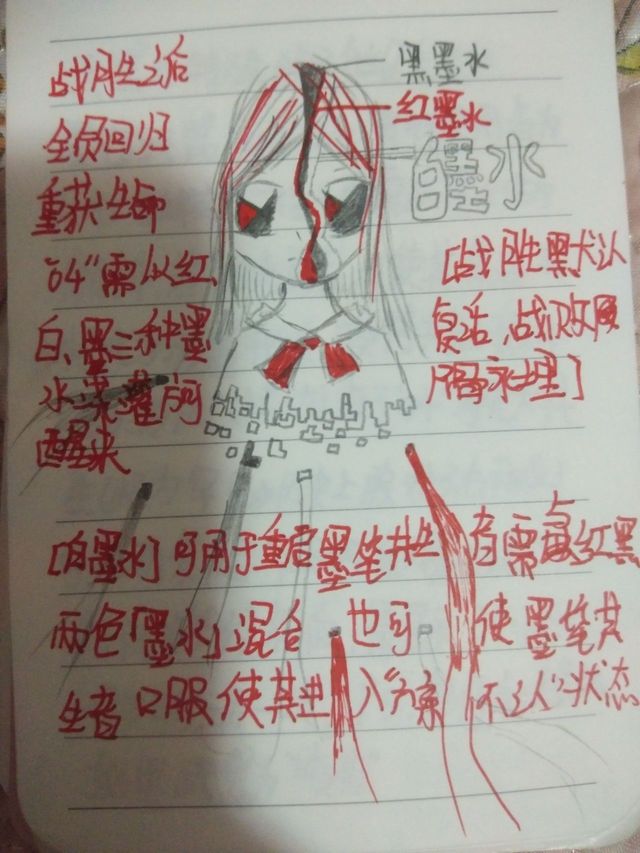 战胜之后
全员回归
重获生命
"04"需以红、
白、墨三种墨
水浇灌方可
醒来
黑墨水
红墨水
白墨水
[战胜黑犬认
复活，战败
永埋]
[白墨水]可用于重启墨笔共生者需与红黑
两色「墨水」混合 也可 使墨笔共
生者口服使其进入 状态